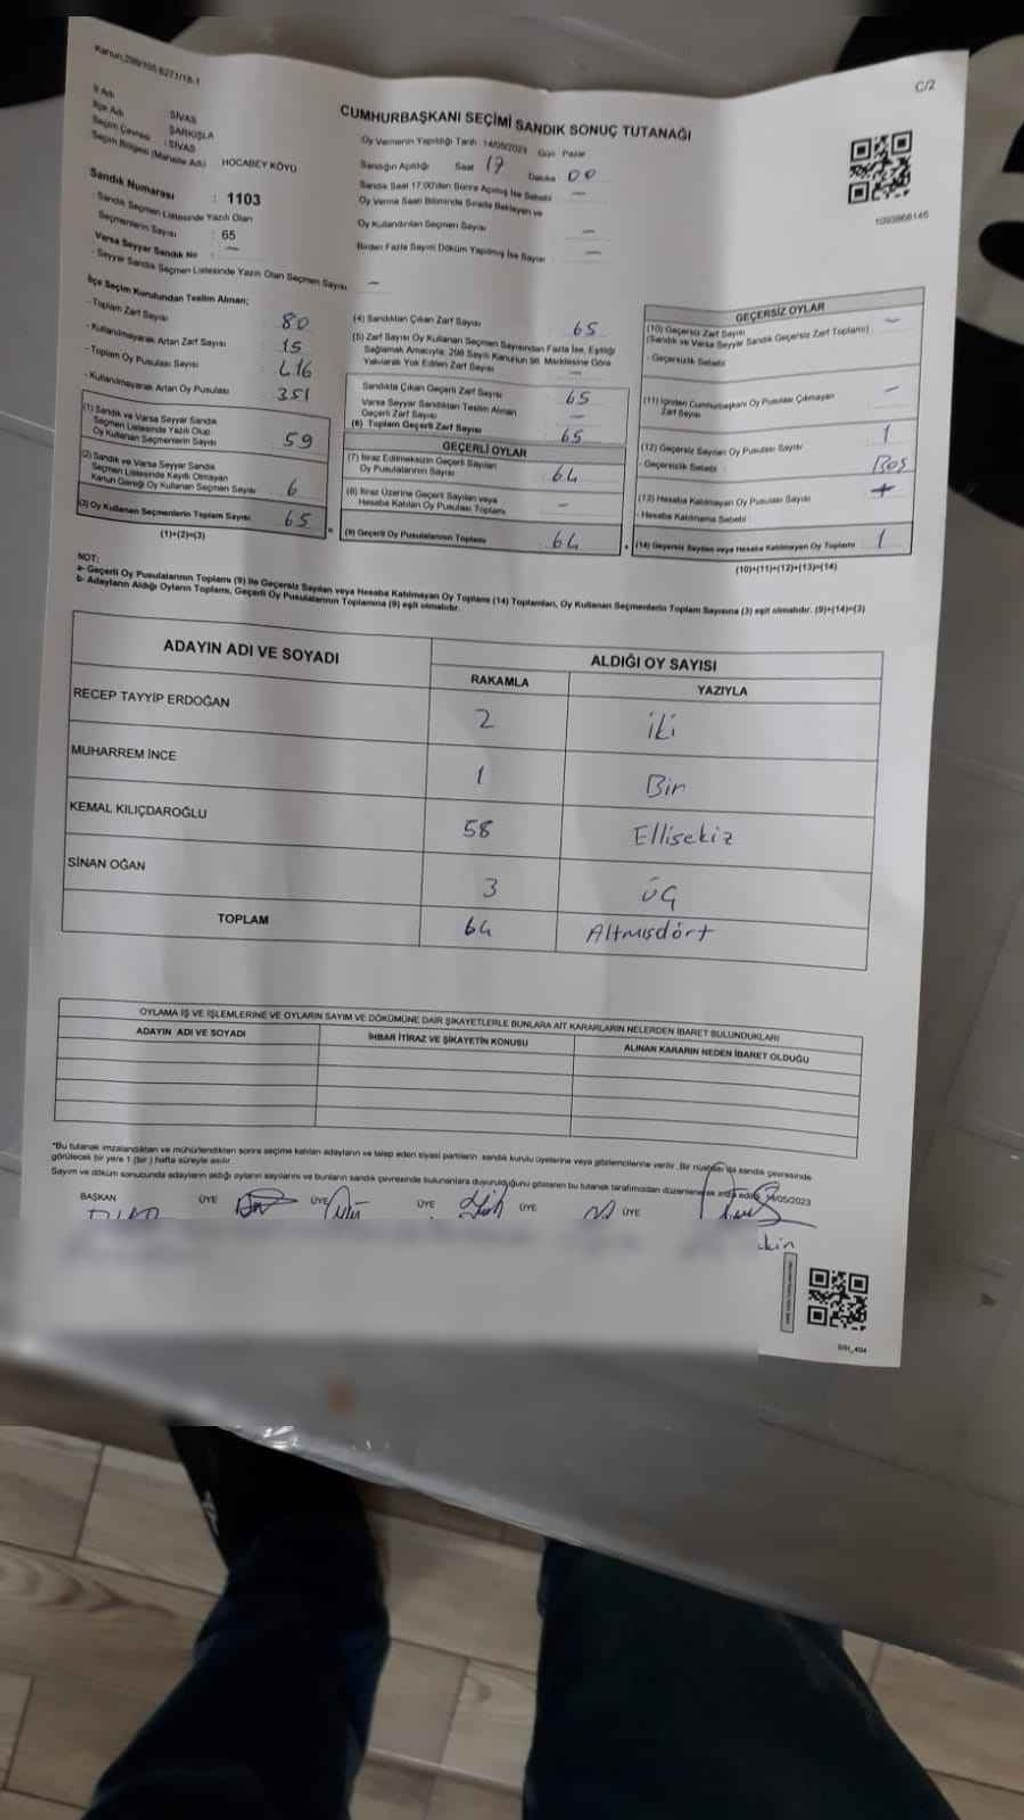 Kanun:298/105,6271/18-1
C/2
CUMHURBAŞKANI SEÇİMİ SANDIK SONUÇ TUTANAĞI
İl Adı : SİVAS
İlçe Adı : ŞARKIŞLA
Seçim Çevresi : SİVAS
Seçim Bölgesi (Mahalle Adı) HOCABEY KÖYÜ
Sandık Numarası : 1103
- Sandık Seçmen Listesinde Yazılı Olan
Seçmenlerin Sayısı : 65
Varsa Seyyar Sandık No : —
- Seyyar Sandık Seçmen Listesinde Yazılı Olan Seçmen Sayısı —
Oy Vermenin Yapıldığı Tarih : 14/05/2023 Gün Pazar
Sandığın Açıldığı Saat 17 Dakika 00
Sandık Saat 17.00'den Sonra Açılmış İse Sebebi —
Oy Verme Saati Bitiminde Sırada Bekleyen ve
Oy Kullandırılan Seçmen Sayısı —
Birden Fazla Sayım Döküm Yapılmış İse Sayısı —
1093866146
İlçe Seçim Kurulundan Teslim Alınan;
- Toplam Zarf Sayısı 80
- Kullanılmayarak Artan Zarf Sayısı 15
- Toplam Oy Pusulası Sayısı 416
- Kullanılmayarak Artan Oy Pusulası 351
(1) Sandık ve Varsa Seyyar Sandık
Seçmen Listesinde Yazılı Olup
Oy Kullanan Seçmenlerin Sayısı 59
(2) Sandık ve Varsa Seyyar Sandık
Seçmen Listesinde Kayıtlı Olmayan
Kanun Gereği Oy Kullanan Seçmen Sayısı 6
(3) Oy Kullanan Seçmenlerin Toplam Sayısı 65
(1)+(2)=(3)
(4) Sandıktan Çıkan Zarf Sayısı 65
(5) Zarf Sayısı Oy Kullanan Seçmen Sayısından Fazla İse, Eşitliği
Sağlamak Amacıyla; 298 Sayılı Kanunun 98. Maddesine Göre
Yakılarak Yok Edilen Zarf Sayısı —
Sandıkta Çıkan Geçerli Zarf Sayısı 65
Varsa Seyyar Sandıktan Teslim Alınan
Geçerli Zarf Sayısı —
(6) Toplam Geçerli Zarf Sayısı 65
GEÇERLİ OYLAR
(7) İtiraz Edilmeksizin Geçerli Sayılan
Oy Pusulalarının Sayısı 64
(8) İtiraz Üzerine Geçerli Sayılan veya
Hesaba Katılan Oy Pusulası Toplamı —
(9) Geçerli Oy Pusulalarının Toplamı 64
GEÇERSİZ OYLAR
(10) Geçersiz Zarf Sayısı —
(Sandık ve Varsa Seyyar Sandık Geçersiz Zarf Toplamı)
- Geçersizlik Sebebi
(11) İçinden Cumhurbaşkanı Oy Pusulası Çıkmayan
Zarf Sayısı —
(12) Geçersiz Sayılan Oy Pusulası Sayısı 1
- Geçersizlik Sebebi Boş
(13) Hesaba Katılmayan Oy Pusulası Sayısı
- Hesaba Katılmama Sebebi
(14) Geçersiz Sayılan veya Hesaba Katılmayan Oy Toplamı 1
(10)+(11)+(12)+(13)=(14)
NOT:
a- Geçerli Oy Pusulalarının Toplamı (9) ile Geçersiz Sayılan veya Hesaba Katılmayan Oy Toplamı (14) Toplamları, Oy Kullanan Seçmenlerin Toplam Sayısına (3) eşit olmalıdır. (9)+(14)=(3)
b- Adayların Aldığı Oyların Toplamı, Geçerli Oy Pusulalarının Toplamına (9) eşit olmalıdır.
ADAYIN ADI VE SOYADI ALDIĞI OY SAYISI
RAKAMLA YAZIYLA
RECEP TAYYİP ERDOĞAN 2 iki
MUHARREM İNCE 1 Bir
KEMAL KILIÇDAROĞLU 58 Ellisekiz
SİNAN OĞAN 3 üç
TOPLAM 64 Altmışdört
OYLAMA İŞ VE İŞLEMLERİNE VE OYLARIN SAYIM VE DÖKÜMÜNE DAİR ŞİKAYETLERLE BUNLARA AİT KARARLARIN NELERDEN İBARET BULUNDUKLARI
ADAYIN ADI VE SOYADI İHBAR İTİRAZ VE ŞİKAYETİN KONUSU ALINAN KARARIN NEDEN İBARET OLDUĞU
*Bu tutanak imzalandıktan ve mühürlendikten sonra seçime katılan adayların ve talep eden siyasi partilerin sandık kurulu üyelerine veya gözlemcilerine verilir. Bir nüshası da sandık çevresinde
görülecek bir yere 1 (bir) hafta süreyle asılır.
Sayım ve döküm sonucunda adayların aldığı oyların sayılarını ve bunların sandık çevresinde bulunanlara duyurulduğunu gösteren bu tutanak tarafımızdan düzenlenerek imza edildi. 14/05/2023
BAŞKAN ÜYE ÜYE ÜYE ÜYE ÜYE